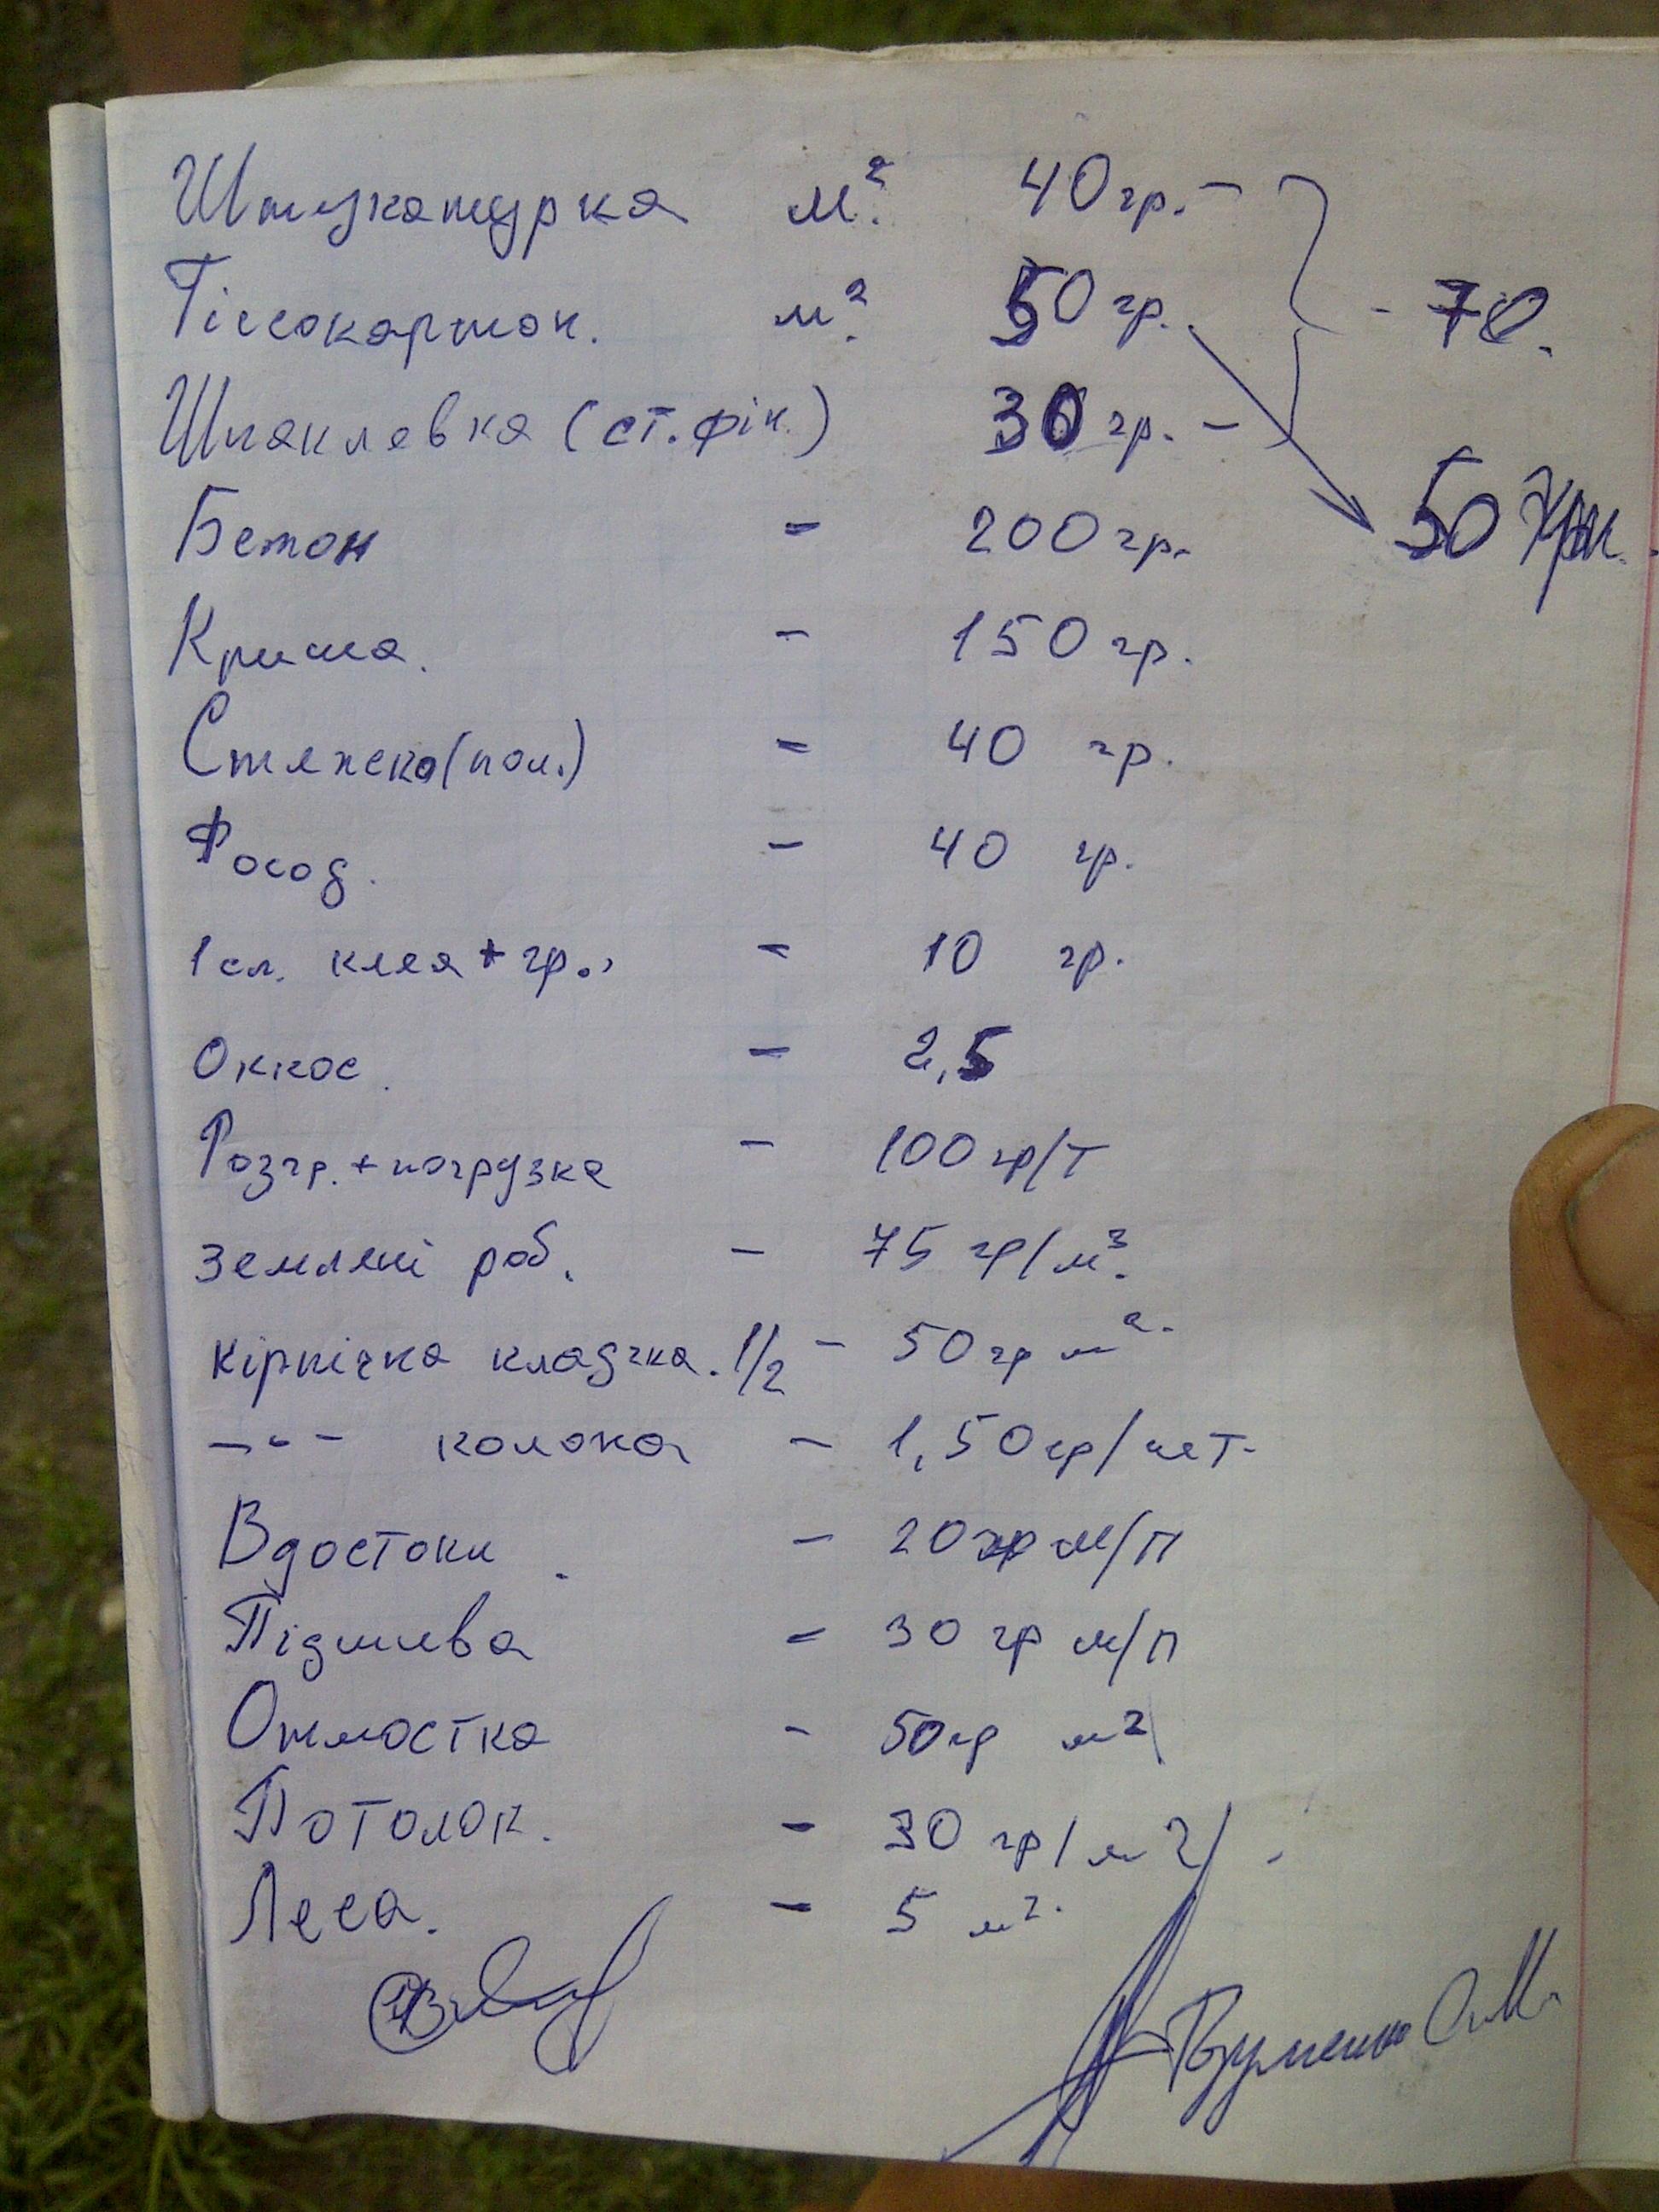 Штукатурка м². 40 гр. –
Гіпсокартон. м². 50 гр. - 70.
Шпаклевка (ст. фін.) 30 гр. –
Бетон – 200 гр. 50 грн.
Криша. – 150 гр.
Стяжка (пол.) – 40 гр.
Фосад. – 40 гр.
1 сл. клея + гр. – 10 гр.
Откос. – 2,5
Розгр. + погрузка – 100 гр/т
Земляні роб. – 75 гр/м³.
кірпічна кладка. 1/2 – 50 гр м².
–"– колона – 1,50 гр/шт.
Вдостоки. – 20 гр м/п
Підшива – 30 гр м/п
Отмостка – 50 гр м²
Потолок. – 30 гр/м²
Леса. – 5 м².